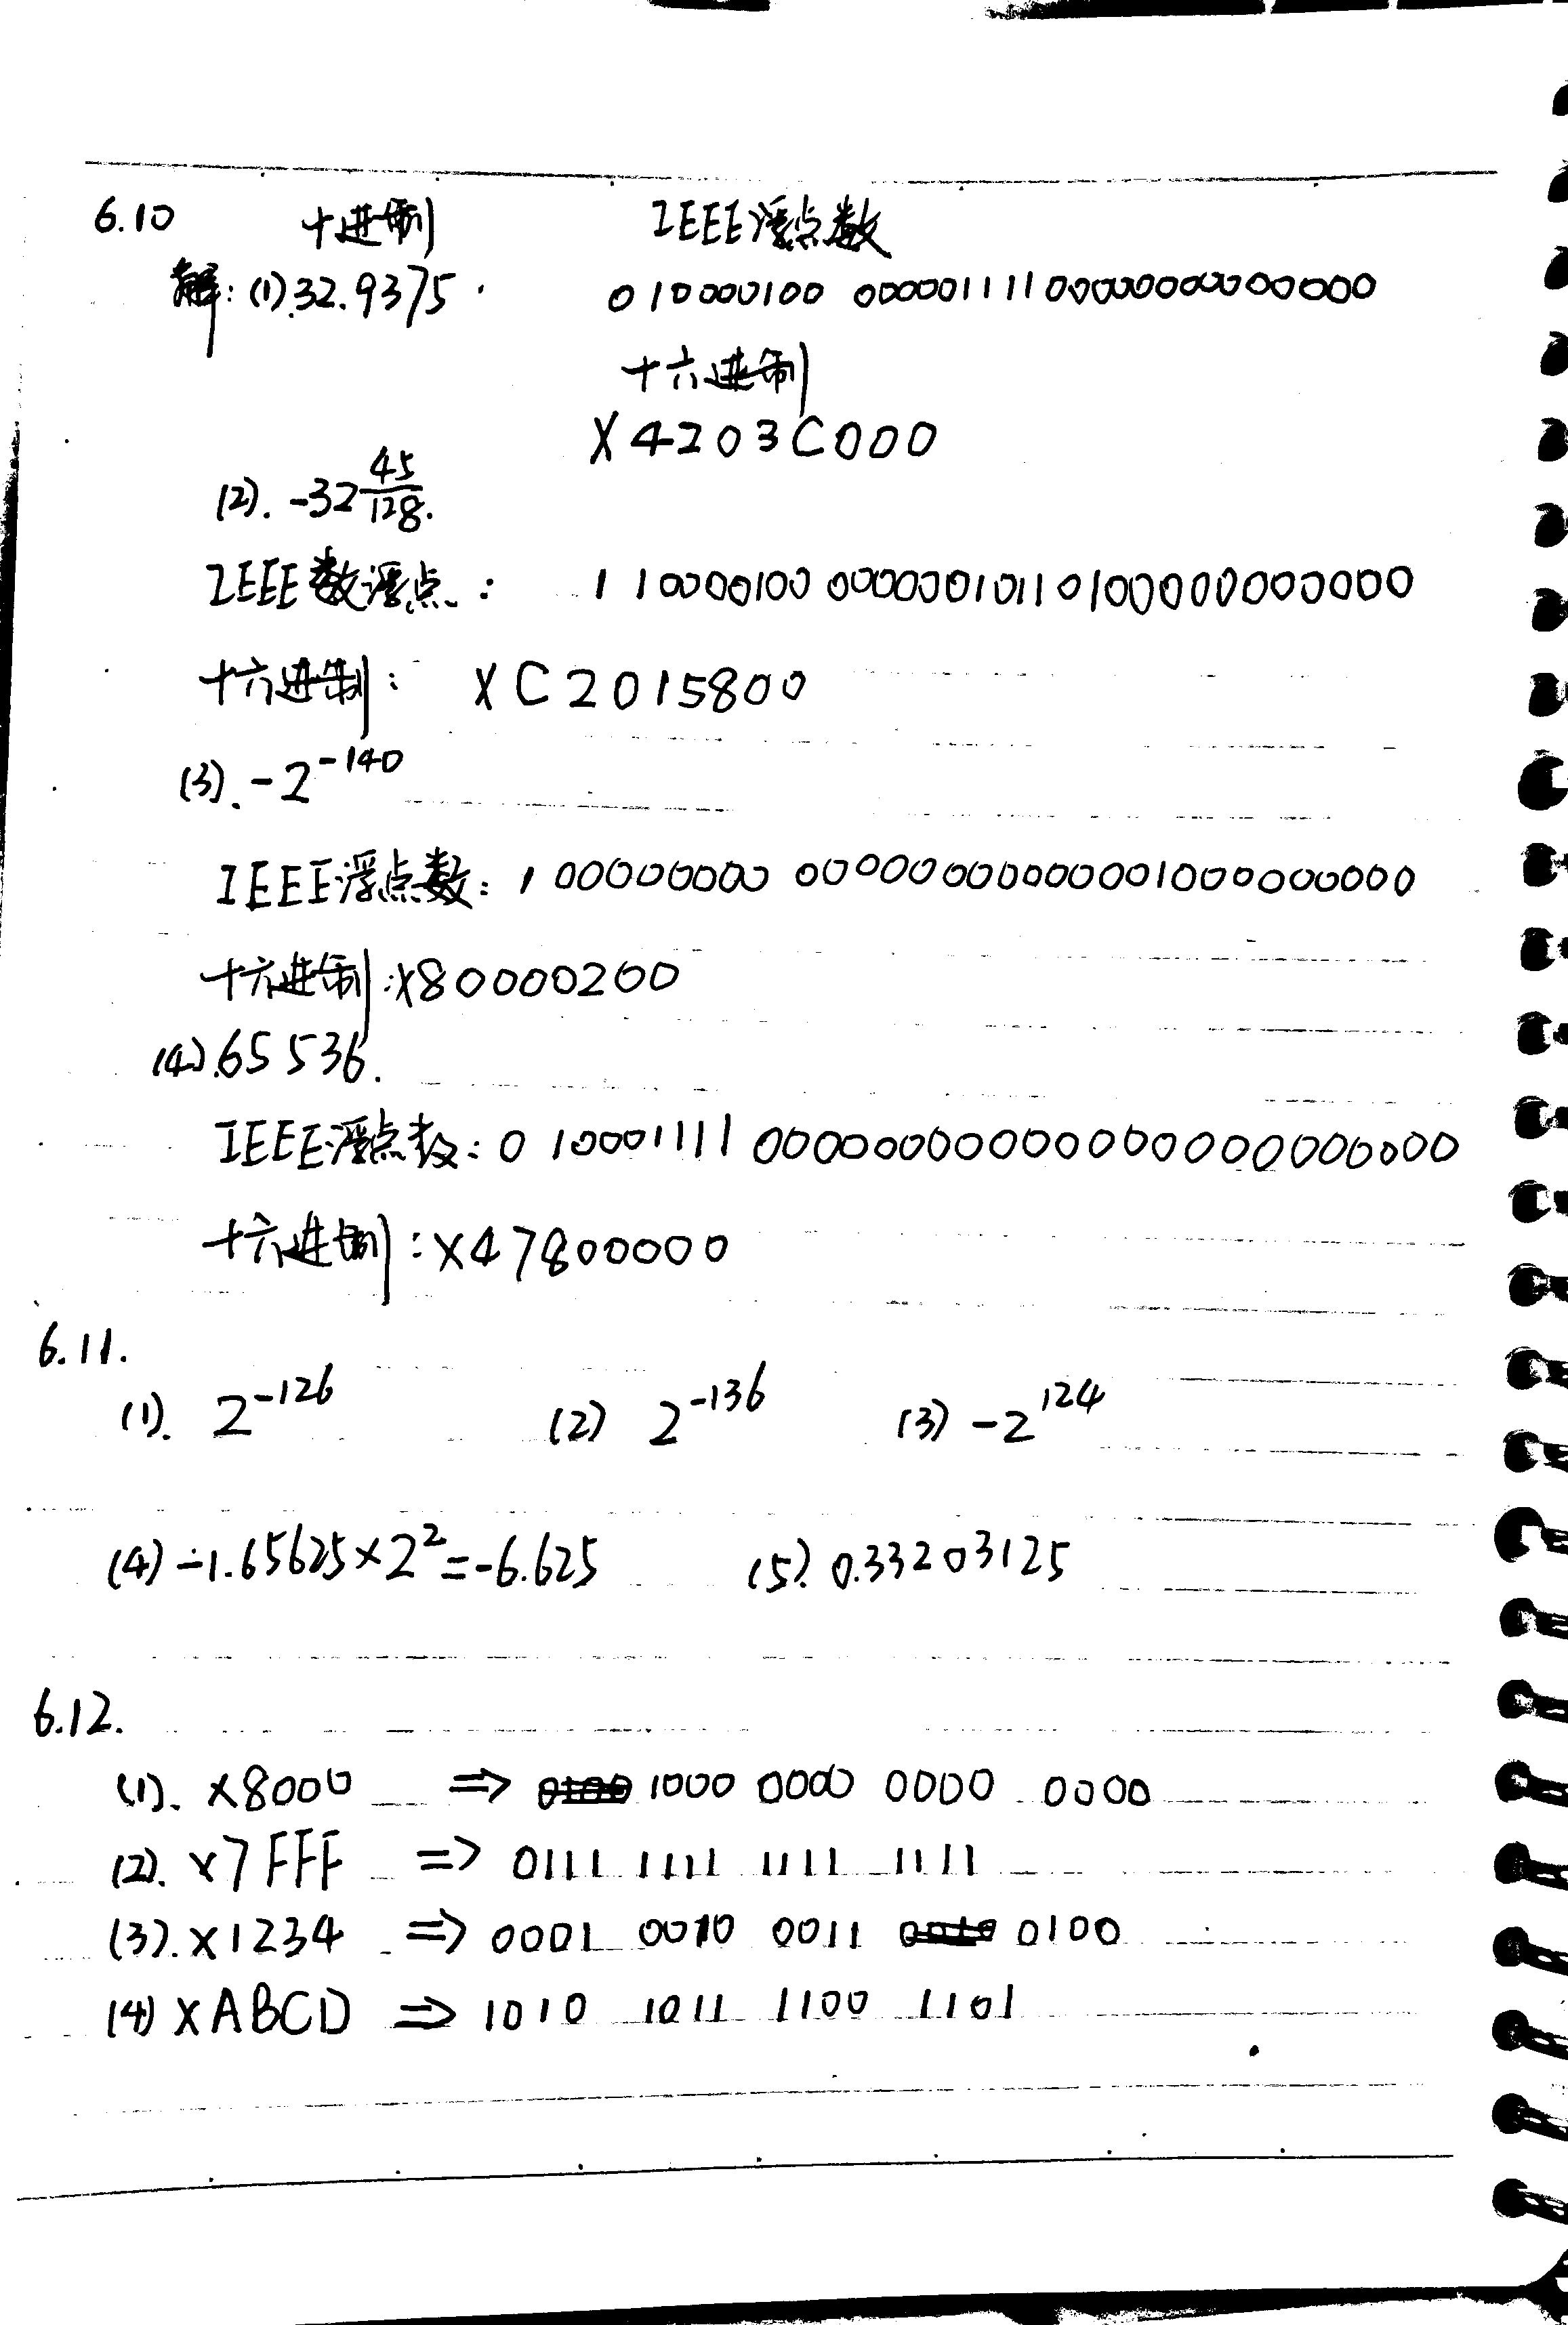 6.10 十进制 IEEE浮点数
解: (1).32.9375. 0 10000100 00000111100000000000000
十六进制
X4203C000
(2). -32 45/128.
IEEE数浮点: 1 10000100 00000010110100000000000
十六进制: XC2015800
(3). -2^-140
IEEE浮点数: 1 00000000 00000000000001000000000
十六进制:X80000200
(4).65536.
IEEE浮点数: 0 10001111 00000000000000000000000
十六进制: X47800000
6.11.
(1). 2^-126 (2) 2^-136 (3) -2^124
(4) -1.65625×2^2=-6.625 (5). 0.33203125
6.12.
(1). x8000 => 1000 0000 0000 0000
(2). x7FFF => 0111 1111 1111 1111
(3). x1234 => 0001 0010 0011 0100
(4) XABCD => 1010 1011 1100 1101